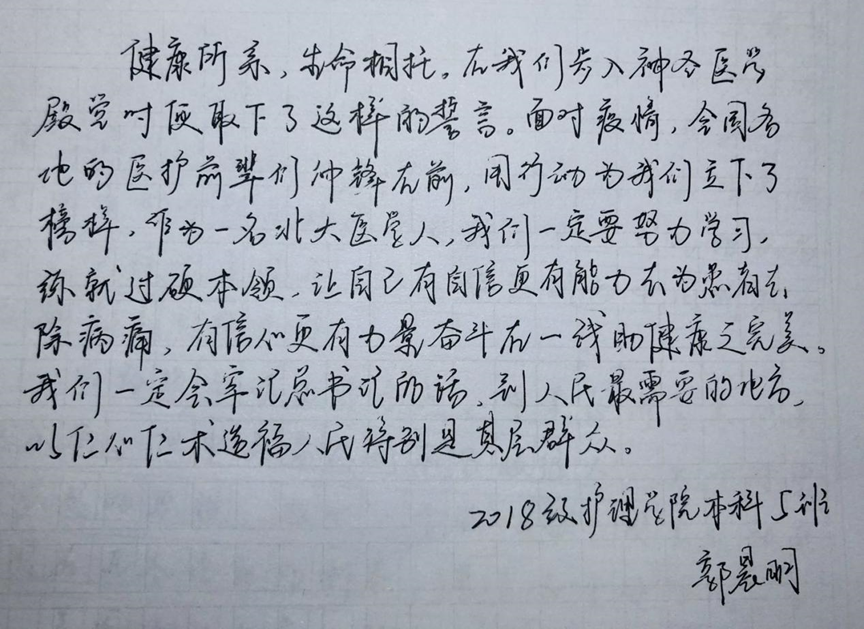 健康所系，生命相托。在我们步入神圣医学
殿堂时便取下了这样的誓言。面对疫情，全国各
地的医护前辈们冲锋在前，用行动为我们立下了
榜样，作为一名北大医学人，我们一定要努力学习，
练就过硬本领，让自己有自信更有能力去为患者去
除病痛，有信心更有力量奋斗在一线助健康之完美。
我们一定会牢记总书记的话，到人民最需要的地方，
以仁心仁术造福人民特别是基层群众。
2018级护理学院本科5班
郭晨明